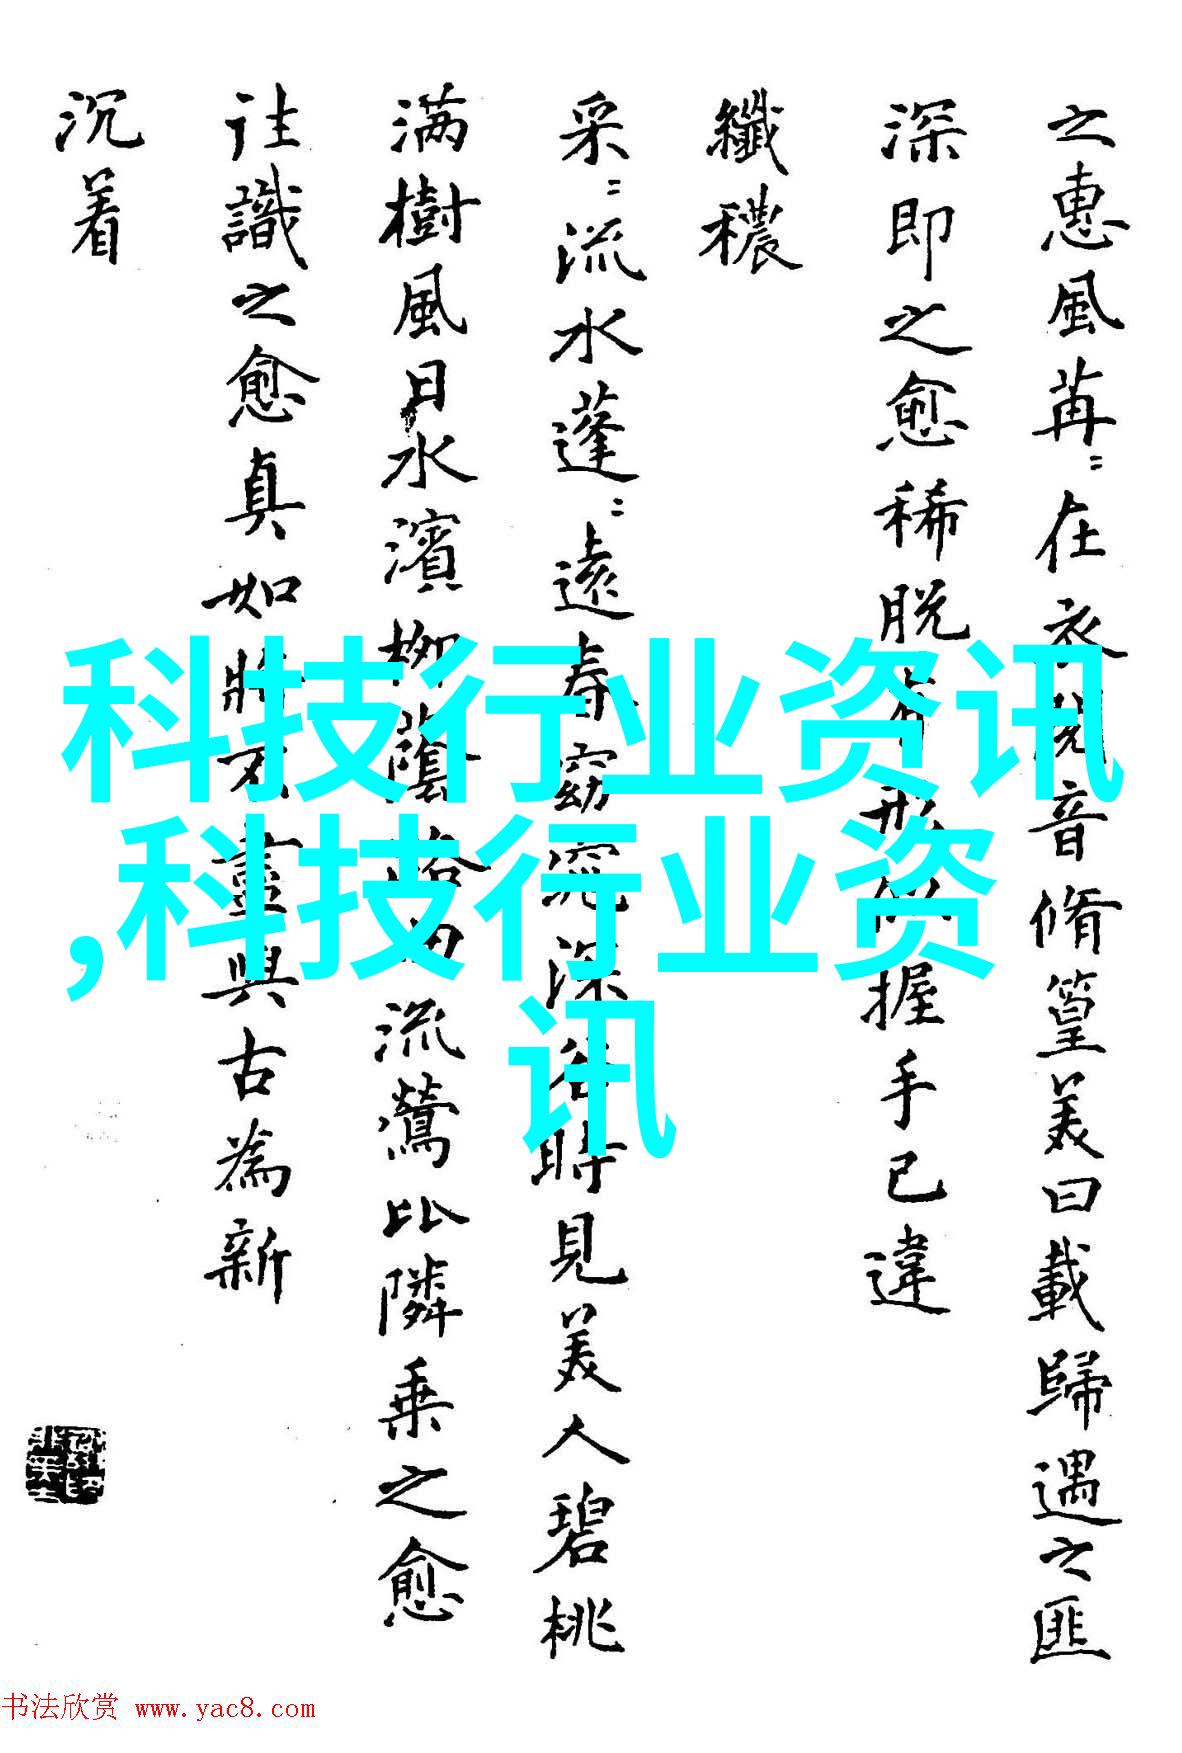 之惠風苒〻在衣閱音脩篁美曰載歸遇之匪
深即之愈稀脱有形似握手已違
纖穠
采〻流水蓬〻遠春窈窕深谷時見美人碧桃
满樹風日水濱柳蔭路曲流鶯比隣乗之愈
往識之愈真如將不盡與古為新
沉着
科技行业资讯
,科技行业资
讯
书法欣赏 www.yac8.com